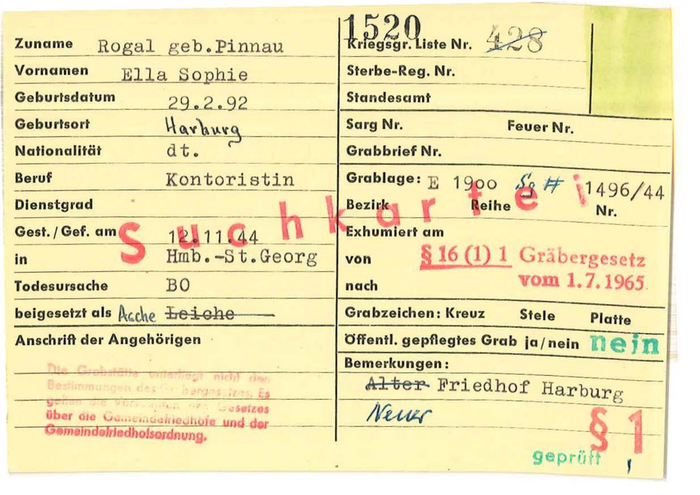 1520
Zuname Rogal geb.Pinnau
Kriegsgr. Liste Nr. 428
Vornamen Ella Sophie
Sterbe-Reg. Nr.
Geburtsdatum 29.2.92
Standesamt
Geburtsort Harburg
Sarg Nr. Feuer Nr.
Nationalität dt.
Grabbrief Nr.
Beruf Kontoristin
Grablage: E 1900 1496/44
Dienstgrad
Bezirk Reihe Nr.
Suchkartei
Gest./Gef. am 12.11.44
Exhumiert am
in Hmb.-St.Georg
von § 16 (1) 1 Gräbergesetz
vom 1.7.1965
Todesursache BO
nach
beigesetzt als Asche Leiche
Grabzeichen: Kreuz Stele Platte
Anschrift der Angehörigen
Öffentl. gepflegtes Grab ja/nein nein
Bemerkungen:
Alter Friedhof Harburg
Neuer
Die Grabstätte unterliegt nicht den
Bestimmungen des Gräbergesetzes. Es
gelten die Vorschriften des Gesetzes
über die Gemeindefriedhöfe und der
Gemeindefriedhofsordnung.
§ 1
geprüft